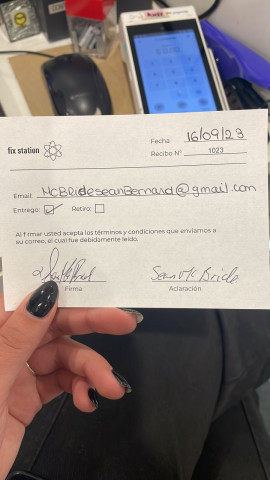 Fecha 16/09/23
fix station
Recibo N° 1023
Email: McBrideseanBernard@gmail.com
Entrego: ☑ Retiro: ☐
Al firmar usted acepta los términos y condiciones que enviamos a
su correo, el cual fue debidamente leído.
Sean Mc Bride
Firma Aclaración